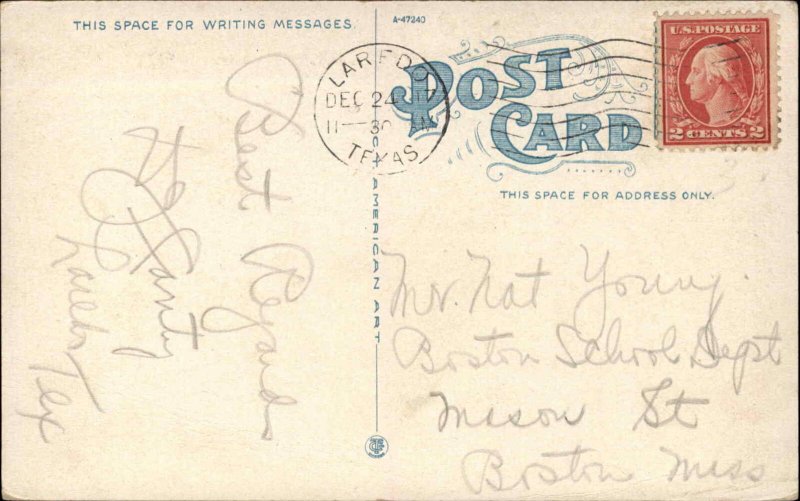 THIS SPACE FOR WRITING MESSAGES.
A-47240
POST
CARD
LAREDO
DEC 24
11 — 30
TEXAS
U.S. POSTAGE
2 CENTS 2
THIS SPACE FOR ADDRESS ONLY.
C.T. AMERICAN ART
Best Regard
Laredo Tex
Mr. Nat Young.
Boston School Dept
Mason St
Boston Mass